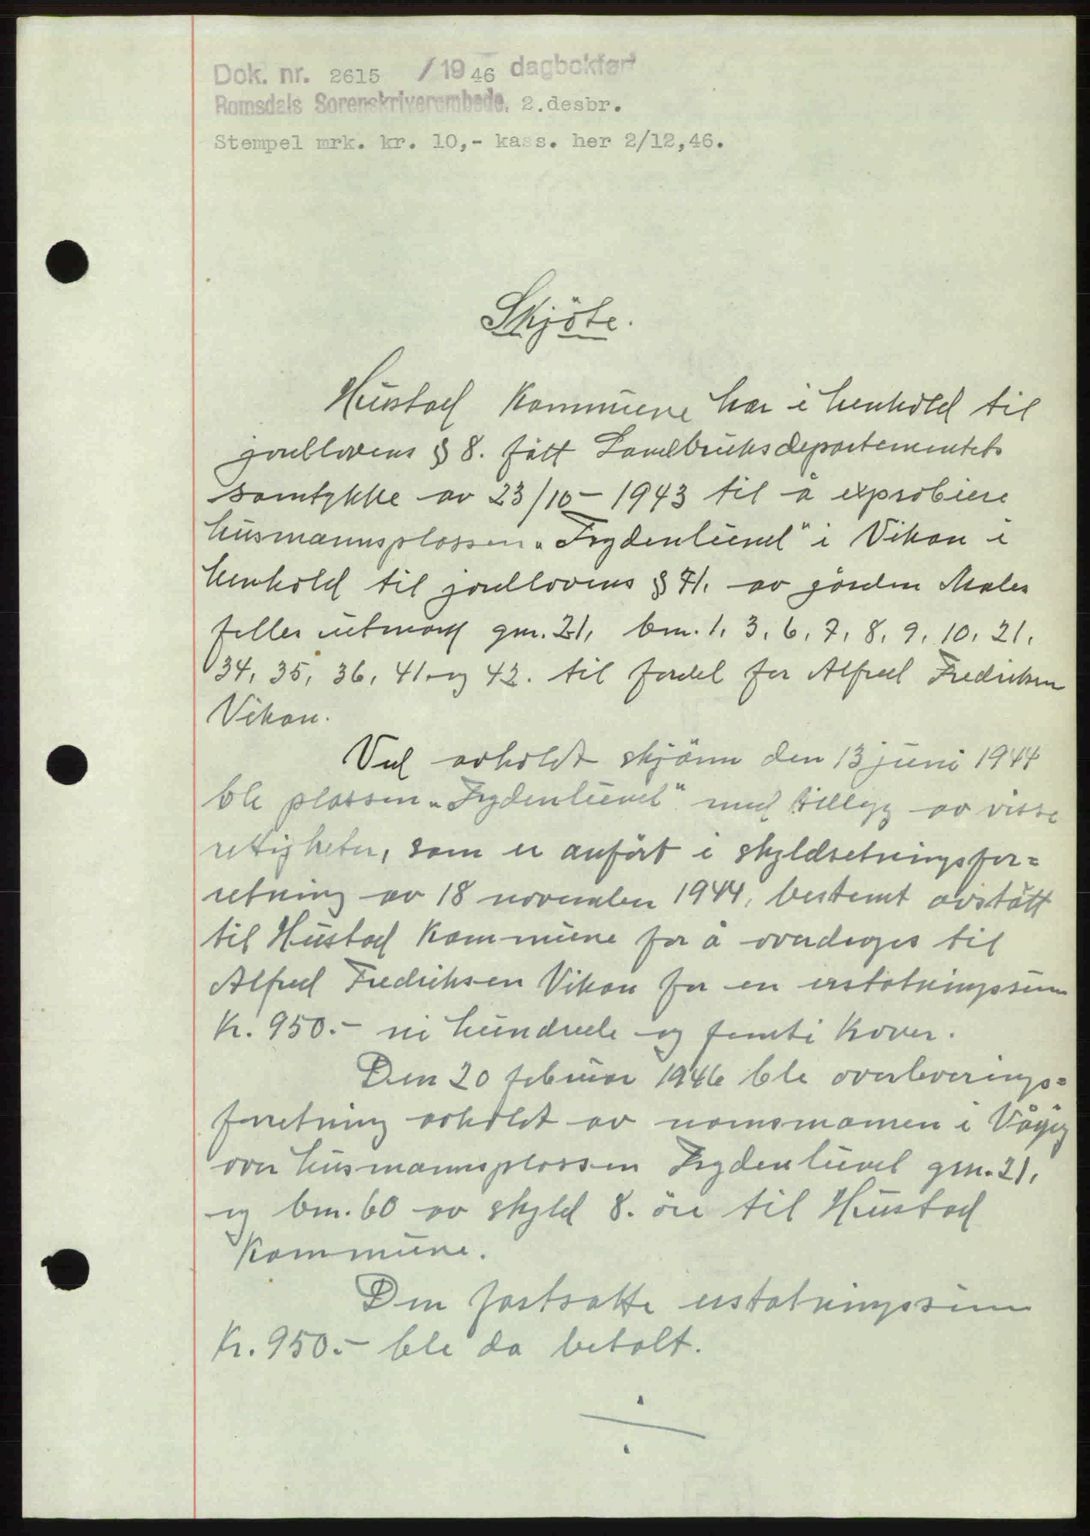 Dok. nr. 2615 / 19 46 dagbokført
Romsdals Sorenskriverembede, 2.desbr.
Stempel mrk. kr. 10,- kass. her 2/12,46.
Skjöte.
Hustad Kommune har i henhold til
jordlovens § 8. fått Landbruksdepartementets
samtykke av 23/10 - 1943 til å exprobiere
husmannsplassen „Frydenlund" i Vikan i
henhold til jordlovens § 71. av gården Males
felles utmark gnr. 21, bnr. 1, 3, 6, 7, 8, 9, 10, 21,
34, 35, 36, 41 og 42. til fordel for Alfred Fredriksen
Vikan.
Ved avholdt skjönn den 13 juni 1944
ble plassen „Frydenlund" med tillegg av visse
rettigheter, som er anfört i skyldsetningsfor=
retning av 18 november 1944, bestemt avstått
til Hustad Kommune for å overdrages til
Alfred Fredriksen Vikan for en erstatningssum
Kr. 950.- ni hundrede og femti Kroner.
Den 20 februar 1946 ble overleverings=
forretning avholdt av namsmannen i Vågöy
over husmannsplassen Frydenlund gnr. 21,
og bnr. 60 av skyld 8. öre til Hustad
Kommune.
Den fastsatte erstatningssum
Kr. 950.- ble da betalt.